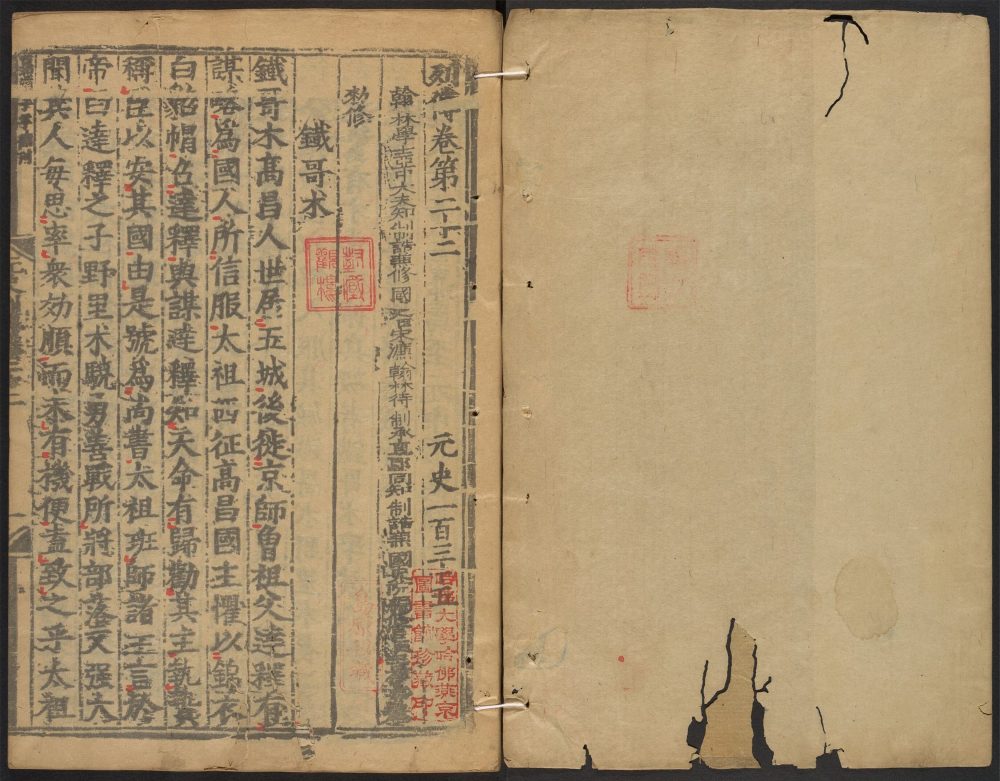 列傳卷第二十二 元史一百三十五
翰林學士亞中大夫知制誥兼修國史臣宋濂翰林待制承直郎同知制誥兼國史院編修官臣王禕等奉
勑修
鐵哥朮
鐵哥朮髙昌人世居五城後徙京師曽祖父達釋有
謀略爲國人所信服太祖西征髙昌國主懼以錦衣
白貂帽召達釋與謀達釋知天命有歸勸其主執贄
稱臣以安其國由是號爲尚書太祖班師諸王言於
帝曰達釋之子野里朮驍勇善戰所將部落又强大
聞其人每思率衆効順而未有機便盍致之乎太祖
哈佛大學哈佛燕京
圖書館珍藏印